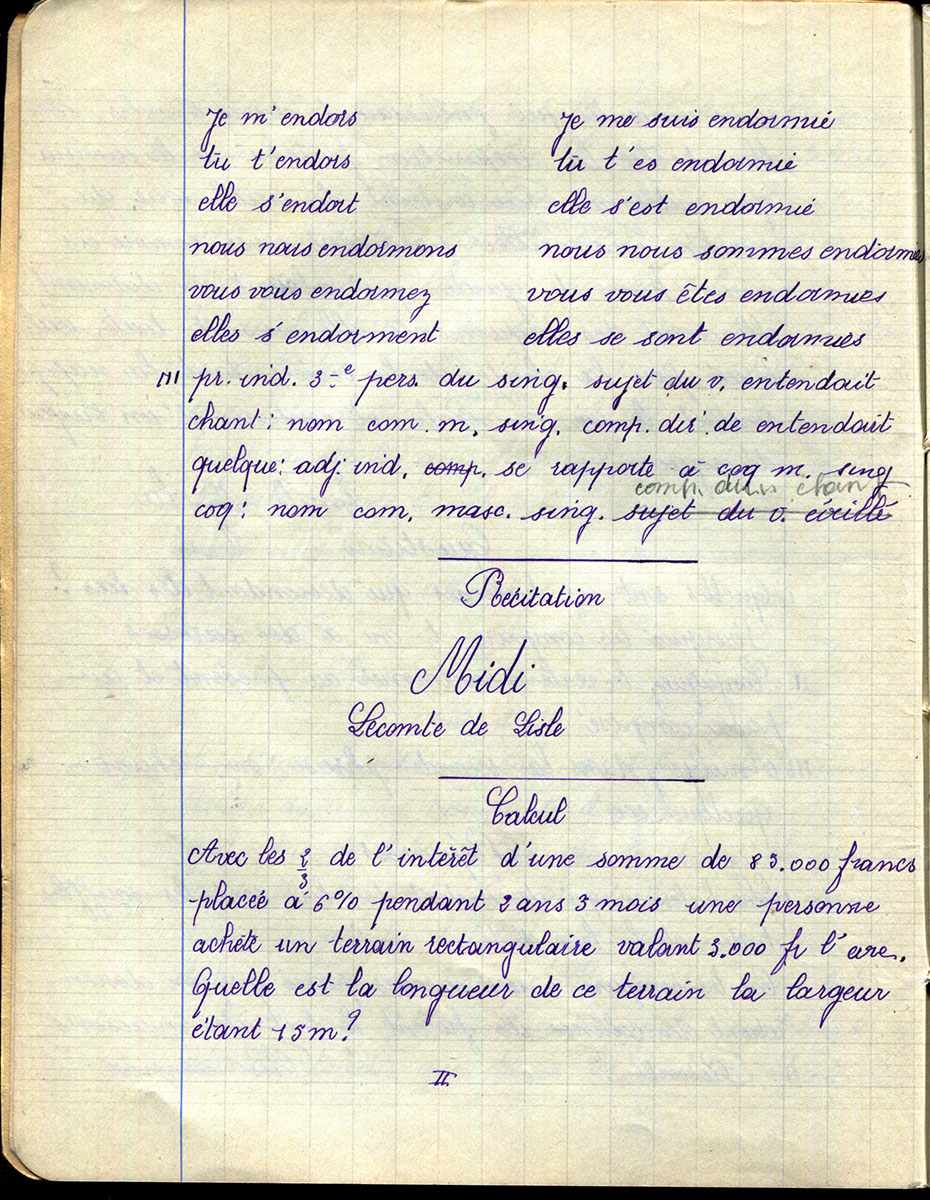 Je m'endors Je me suis endormie
tu t'endors tu t'es endormie
elle s'endort elle s'est endormie
nous nous endormons nous nous sommes endormies
vous vous endormez vous vous êtes endormies
elles s'endorment elles se sont endormies
III pr. ind. 3e pers. du sing. sujet du v. entendait
chant : nom com. m. sing. comp. dir. de entendait
quelque : adj. ind. comp. se rapporte à coq m. sing
comp. du n. chant
coq : nom com. masc. sing. sujet du v.
Récitation
Midi
Leconte de Lisle
Calcul
Avec les 2/3 de l'intérêt d'une somme de 83.000 francs
placée à 6% pendant 2 ans 3 mois une personne
achète un terrain rectangulaire valant 3.000 fr l'are.
Quelle est la longueur de ce terrain la largeur
étant 15m?
II